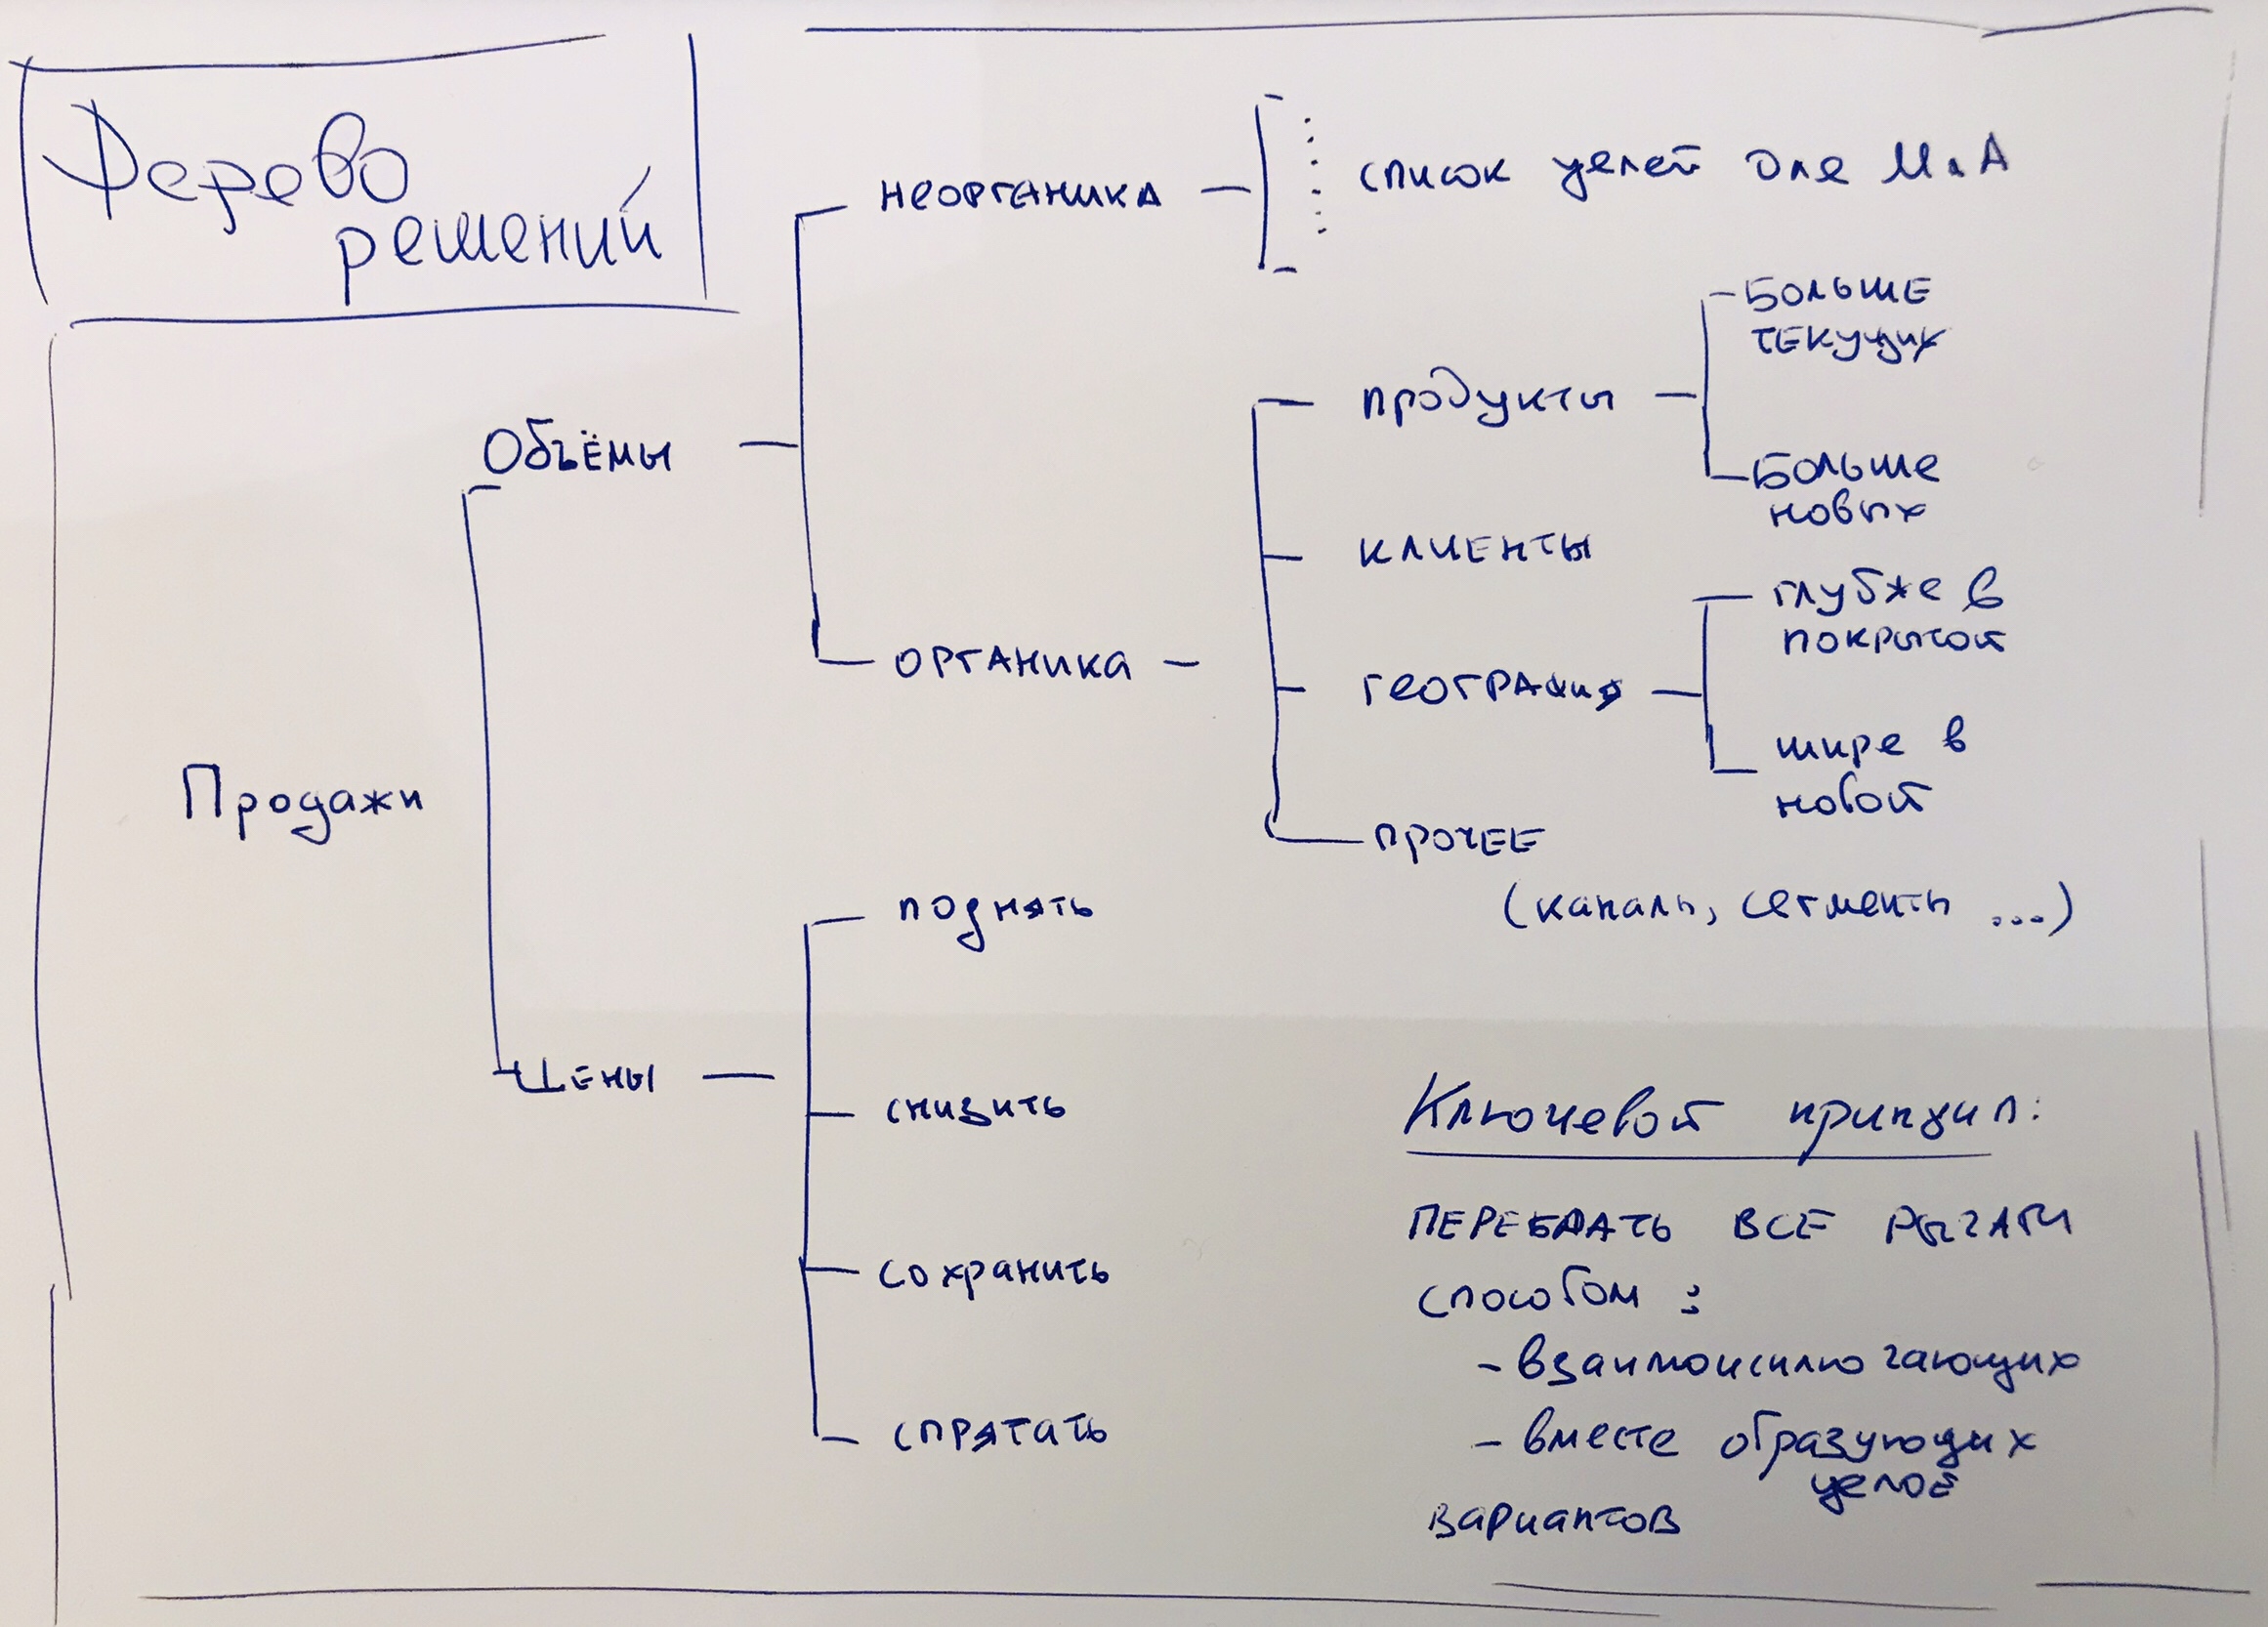 Дерево
решений
неорганика
список целей для M&A
Больше
текущих
продукты
Объёмы
Больше
новых
клиенты
глубже в
покрытой
органика
география
шире в
новой
Продажи
прочее
(каналы, сегменты ...)
поднять
Цены
снизить
сохранить
спрятать
Ключевой принцип:
ПЕРЕБРАТЬ ВСЕ РЫЧАГИ
способом :
- взаимоисключающих
- вместе образующих
целое
вариантов